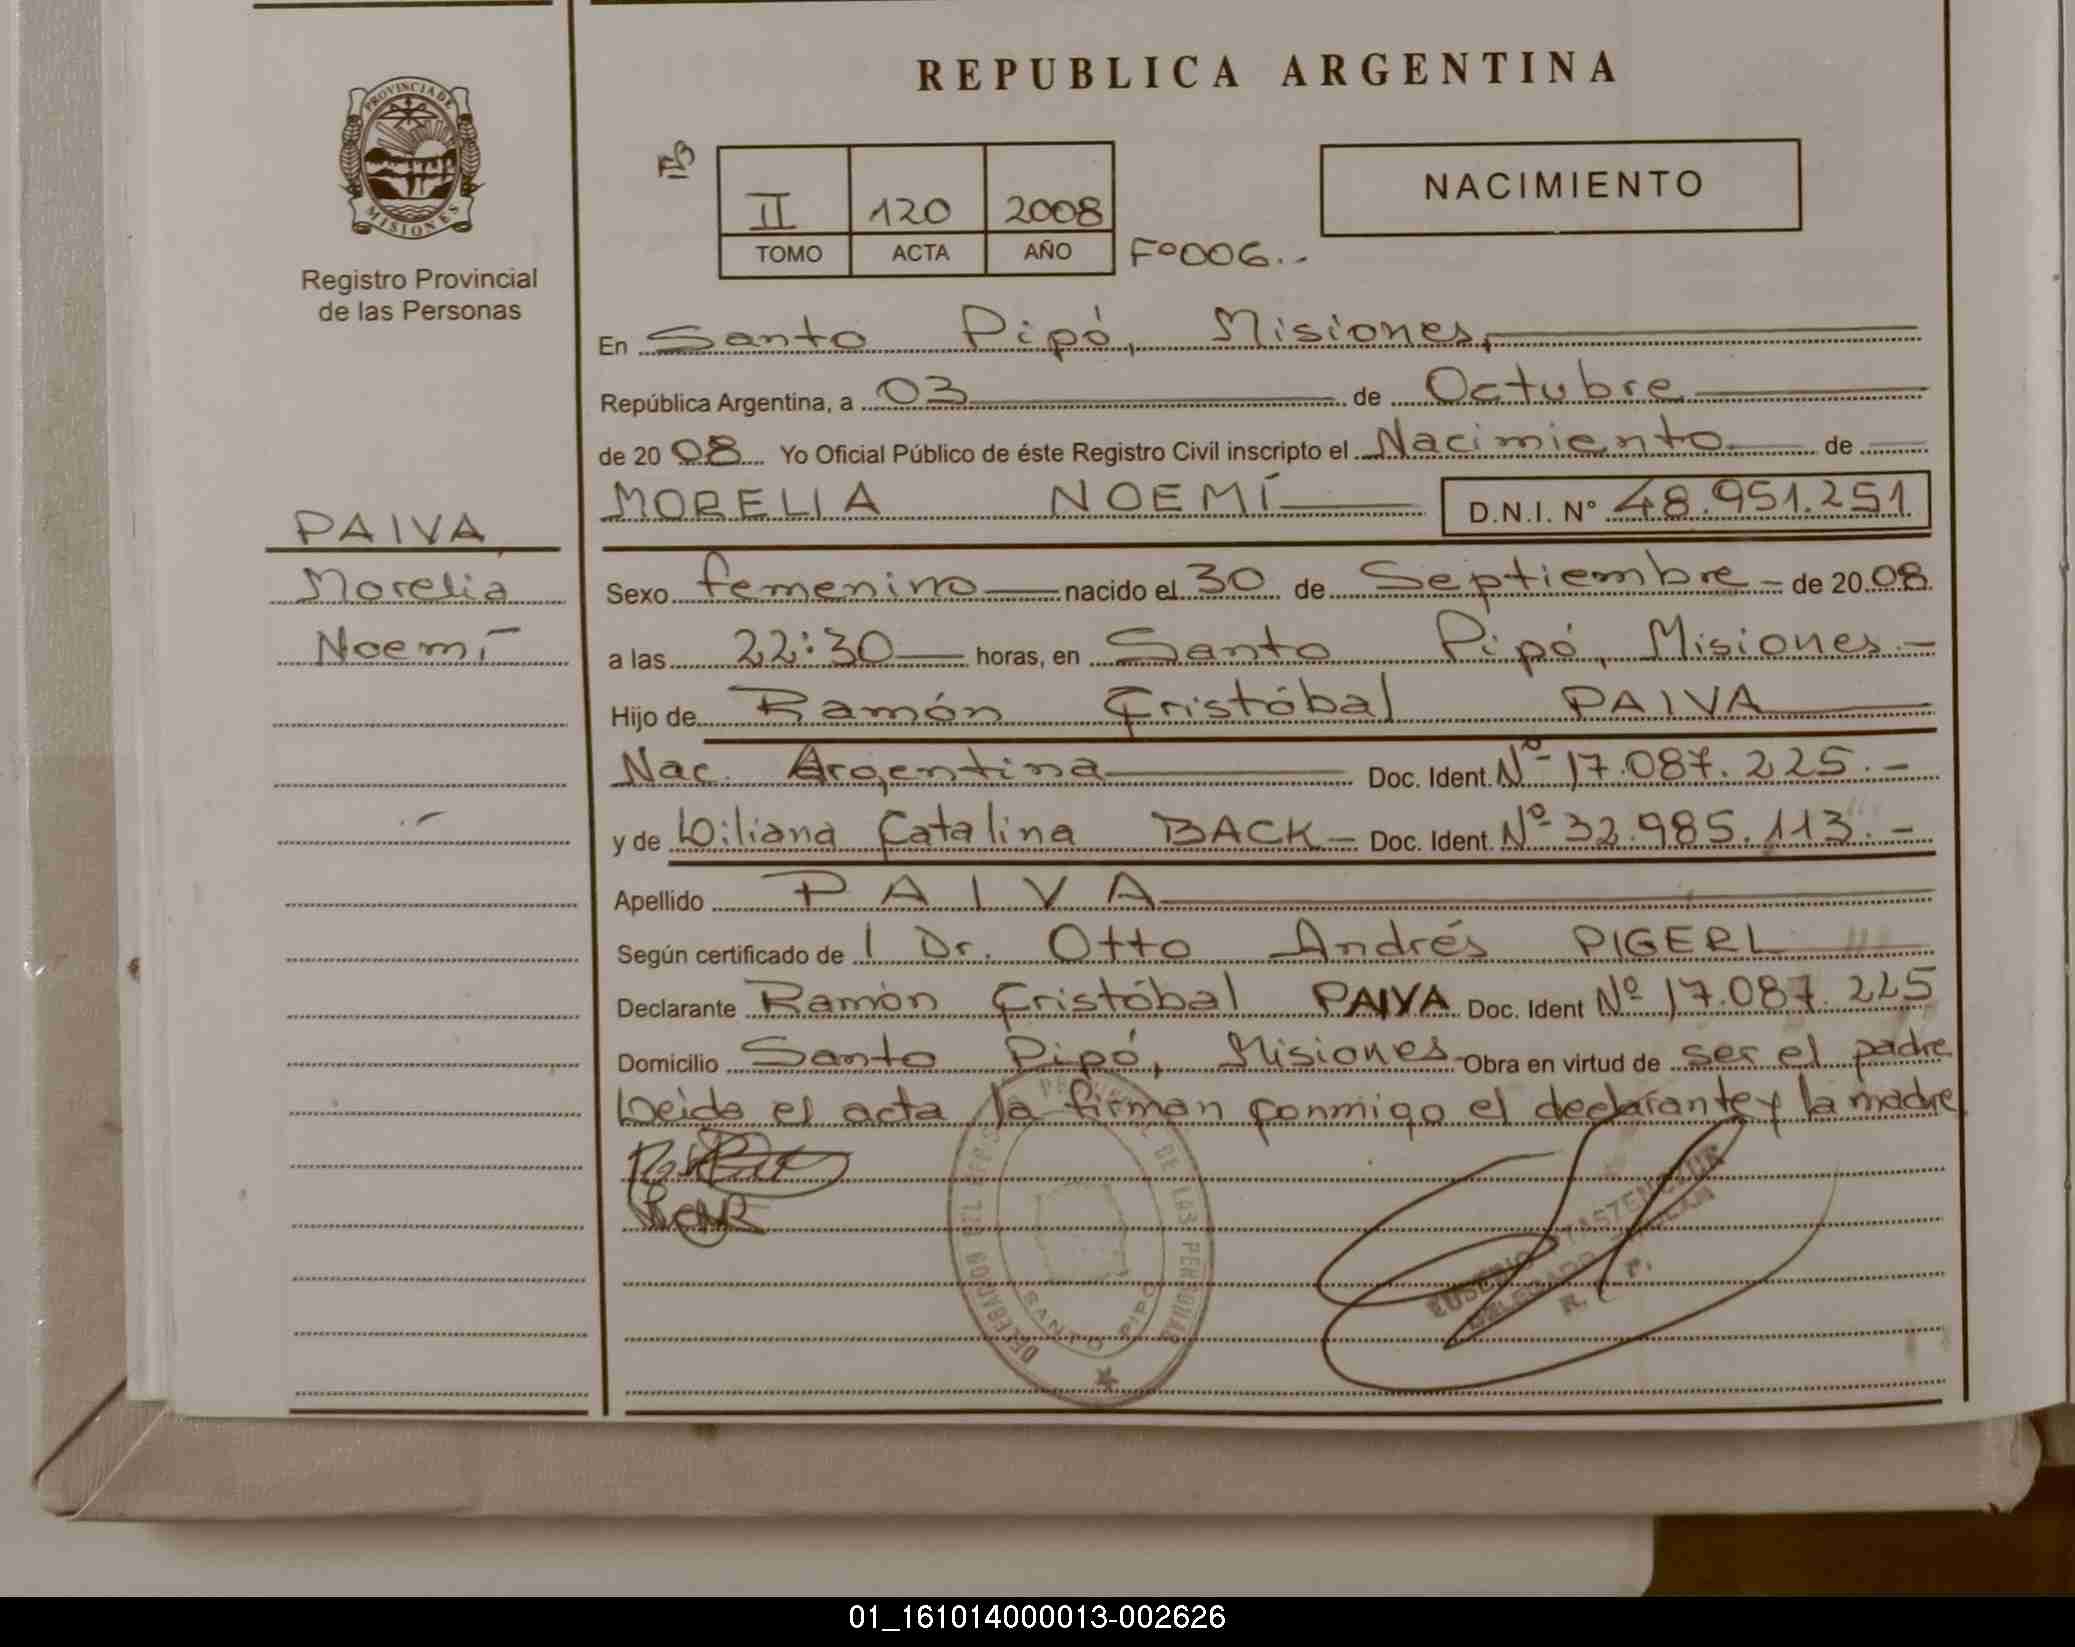 REPUBLICA ARGENTINA
PROVINCIA DE
MISIONES
Registro Provincial
de las Personas
II 120 2008
TOMO ACTA AÑO
Fº006..-
NACIMIENTO
En Santo Pipó, Misiones,
República Argentina, a 03 de Octubre
de 20 08 Yo Oficial Público de éste Registro Civil inscripto el Nacimiento de
MORELIA NOEMÍ D.N.I. N° 48.951.251
PAIVA
Morelia
Noemí
Sexo femenino nacido el 30 de Septiembre - de 20 08.
a las 22:30 horas, en Santo Pipó, Misiones -
Hijo de Ramón Cristóbal PAIVA
Nac. Argentina Doc. Ident. Nº 17.087.225.-
y de Liliana Catalina BACK - Doc. Ident. Nº 32.985.113.-
Apellido PAIVA
Según certificado de l Dr. Otto Andrés PIGERL
Declarante Ramón Cristóbal PAIVA Doc. Ident Nº 17.087.225
Domicilio Santo Pipó, Misiones - Obra en virtud de ser el padre
Leida el acta la firman conmigo el declarante y la madre
DE LAS PERSONAS
SANTO PIPO
EUSEBIO
DELEGADO
01_161014000013-002626